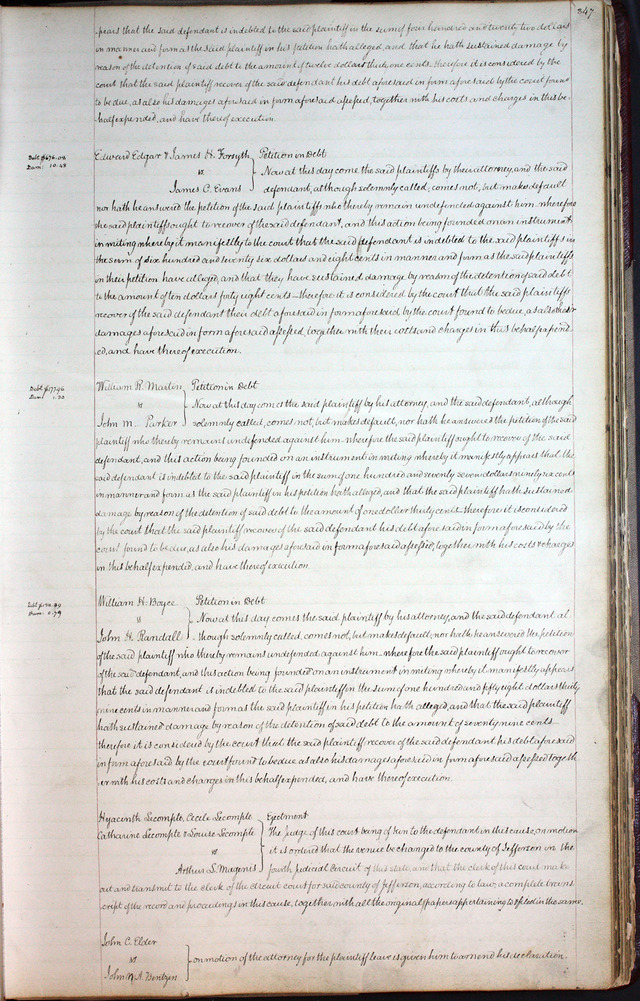 347
pears that the said defendant is indebted to the said plaintiff in the sum of four hundred and twenty two dollars
in manner and form as the said plaintiff in his petition hath alleged, and that he hath sustained damage by
reason of the detention of said debt to the amount of twelve dollars thirty one cents. therefore it is considered by the
court that the said plaintiff recover of the said defendant his debt aforesaid in form aforesaid by the court found
to be due, as also his damages aforesaid in form aforesaid assessed, together with his costs and charges in this be-
half expended, and have thereof execution.
Debt $676.08
Dam: 10.48
Edward Edgar & James H. Forsyth Petition in Debt
vs Now at this day come the said plaintiffs by their attorney, and the said
James C. Evans defendant, although solemnly called, comes not, but makes default
nor hath he answered the petition of the said plaintiffs who thereby remain undefended against him. wherefore
the said plaintiffs ought to recover of the said defendant, and this action being founded on an instrument
in writing whereby it manifestly to the court that the said defendant is indebted to the said plaintiffs in
the sum of six hundred and seventy six dollars and eight cents in manner and form as the said plaintiffs
in their petition have alleged, and that they have sustained damage by reason of the detention of said debt
to the amount of ten dollars forty eight cents - therefore it is considered by the court that the said plaintiffs
recover of the said defendant their debt aforesaid in form aforesaid by the court found to be due, as also their
damages aforesaid in form aforesaid assessed, together with their costs and charges in this behalf expend-
ed, and have thereof execution.
Debt $177.96
Dam: 1.30
William P. Martin Petition in Debt
vs Now at this day comes the said plaintiff by his attorney, and the said defendant, although
John M. Parker solemnly called, comes not, but makes default, nor hath he answered the petition of the said
plaintiff who thereby remains undefended against him. wherefore the said plaintiff ought to recover of the said
defendant, and this action being founded on an instrument in writing whereby it manifestly appears that the
said defendant is indebted to the said plaintiff in the sum of one hundred and seventy seven dollars ninety six cents
in manner and form as the said plaintiff in his petition hath alleged, and that the said plaintiff hath sustained
damage by reason of the detention of said debt to the amount of one dollar thirty cents. therefore it is considered
by the court that the said plaintiff recover of the said defendant his debt aforesaid in form aforesaid by the
court found to be due, as also his damages aforesaid in form aforesaid assessed, together with his costs & charges
in this behalf expended, and have thereof execution
Dam: 0.79
William H. Boyce Petition in Debt
vs Now at this day comes the said plaintiff by his attorney, and the said defendant al
John H. Randall though solemnly called, comes not, but makes default, nor hath he answered the petition
of the said plaintiff who thereby remains undefended against him - wherefore the said plaintiff ought to recover
of the said defendant, and this action being founded on an instrument in writing whereby it manifestly appears
that the said defendant is indebted to the said plaintiff in the sum of one hundred and fifty eight dollars thirty
nine cents in manner and form as the said plaintiff in his petition hath alleged, and that the said plaintiff
hath sustained damage by reason of the detention of said debt to the amount of seventy nine cents -
therefore it is considered by the court that the said plaintiff recover of the said defendant his debt aforesaid
in form aforesaid by the court found to be due as also his damages aforesaid in form aforesaid assessed togeth-
er with his costs and charges in this behalf expended, and have thereof execution.
Hyacinth Lecompte, Cecile Lecompte Ejectment
Catharine Lecompte & Louise Lecompte The Judge of this court being of kin to the defendant in this cause, on motion
vs it is ordered that the venue be changed to the county of Jefferson in the
Arthur L. Magenis fourth judicial circuit of this state, and that the clerk of this court make
out and transmit to the clerk of the circuit court for said county of Jefferson, according to law, a complete trans-
cript of the record and proceedings in this cause, together with all the original papers appertaining to & filed in the same.
John C. Elder
vs on motion of the attorney for the plaintiff leave is given him to amend his declaration.
John N. A. Bentzen